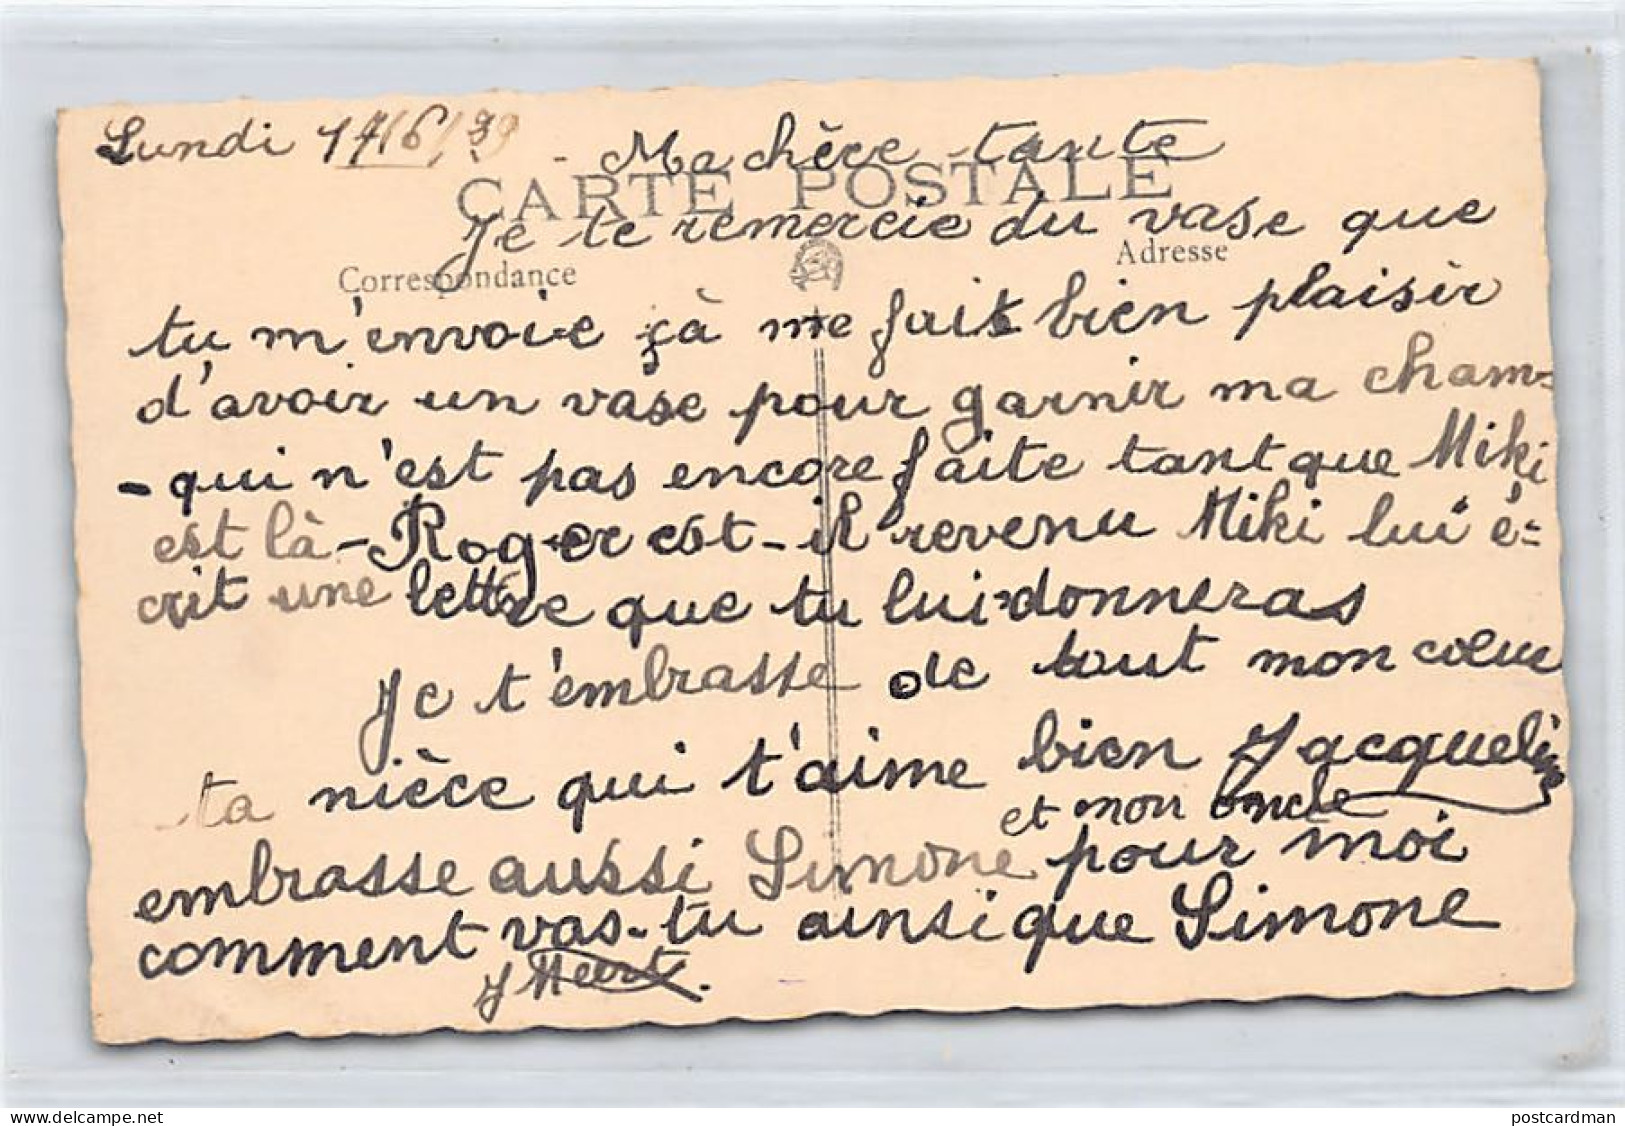 Lundi 17/6/39
- Ma chère tante
CARTE POSTALE
Je te remercie du vase que
Correspondance
Adresse
tu m'envoie çà me fait bien plaisir
d'avoir un vase pour garnir ma cham-
-qui n'est pas encore faite tant que Miki
est là - Roger est-il revenu Miki lui é-
crit une lettre que tu lui donneras
Je t'embrasse de tout mon coeur
ta nièce qui t'aime bien Jacqueline
et mon oncle
embrasse aussi Simone pour moi
comment vas-tu ainsi que Simone
J
delcampe.net
postcardman